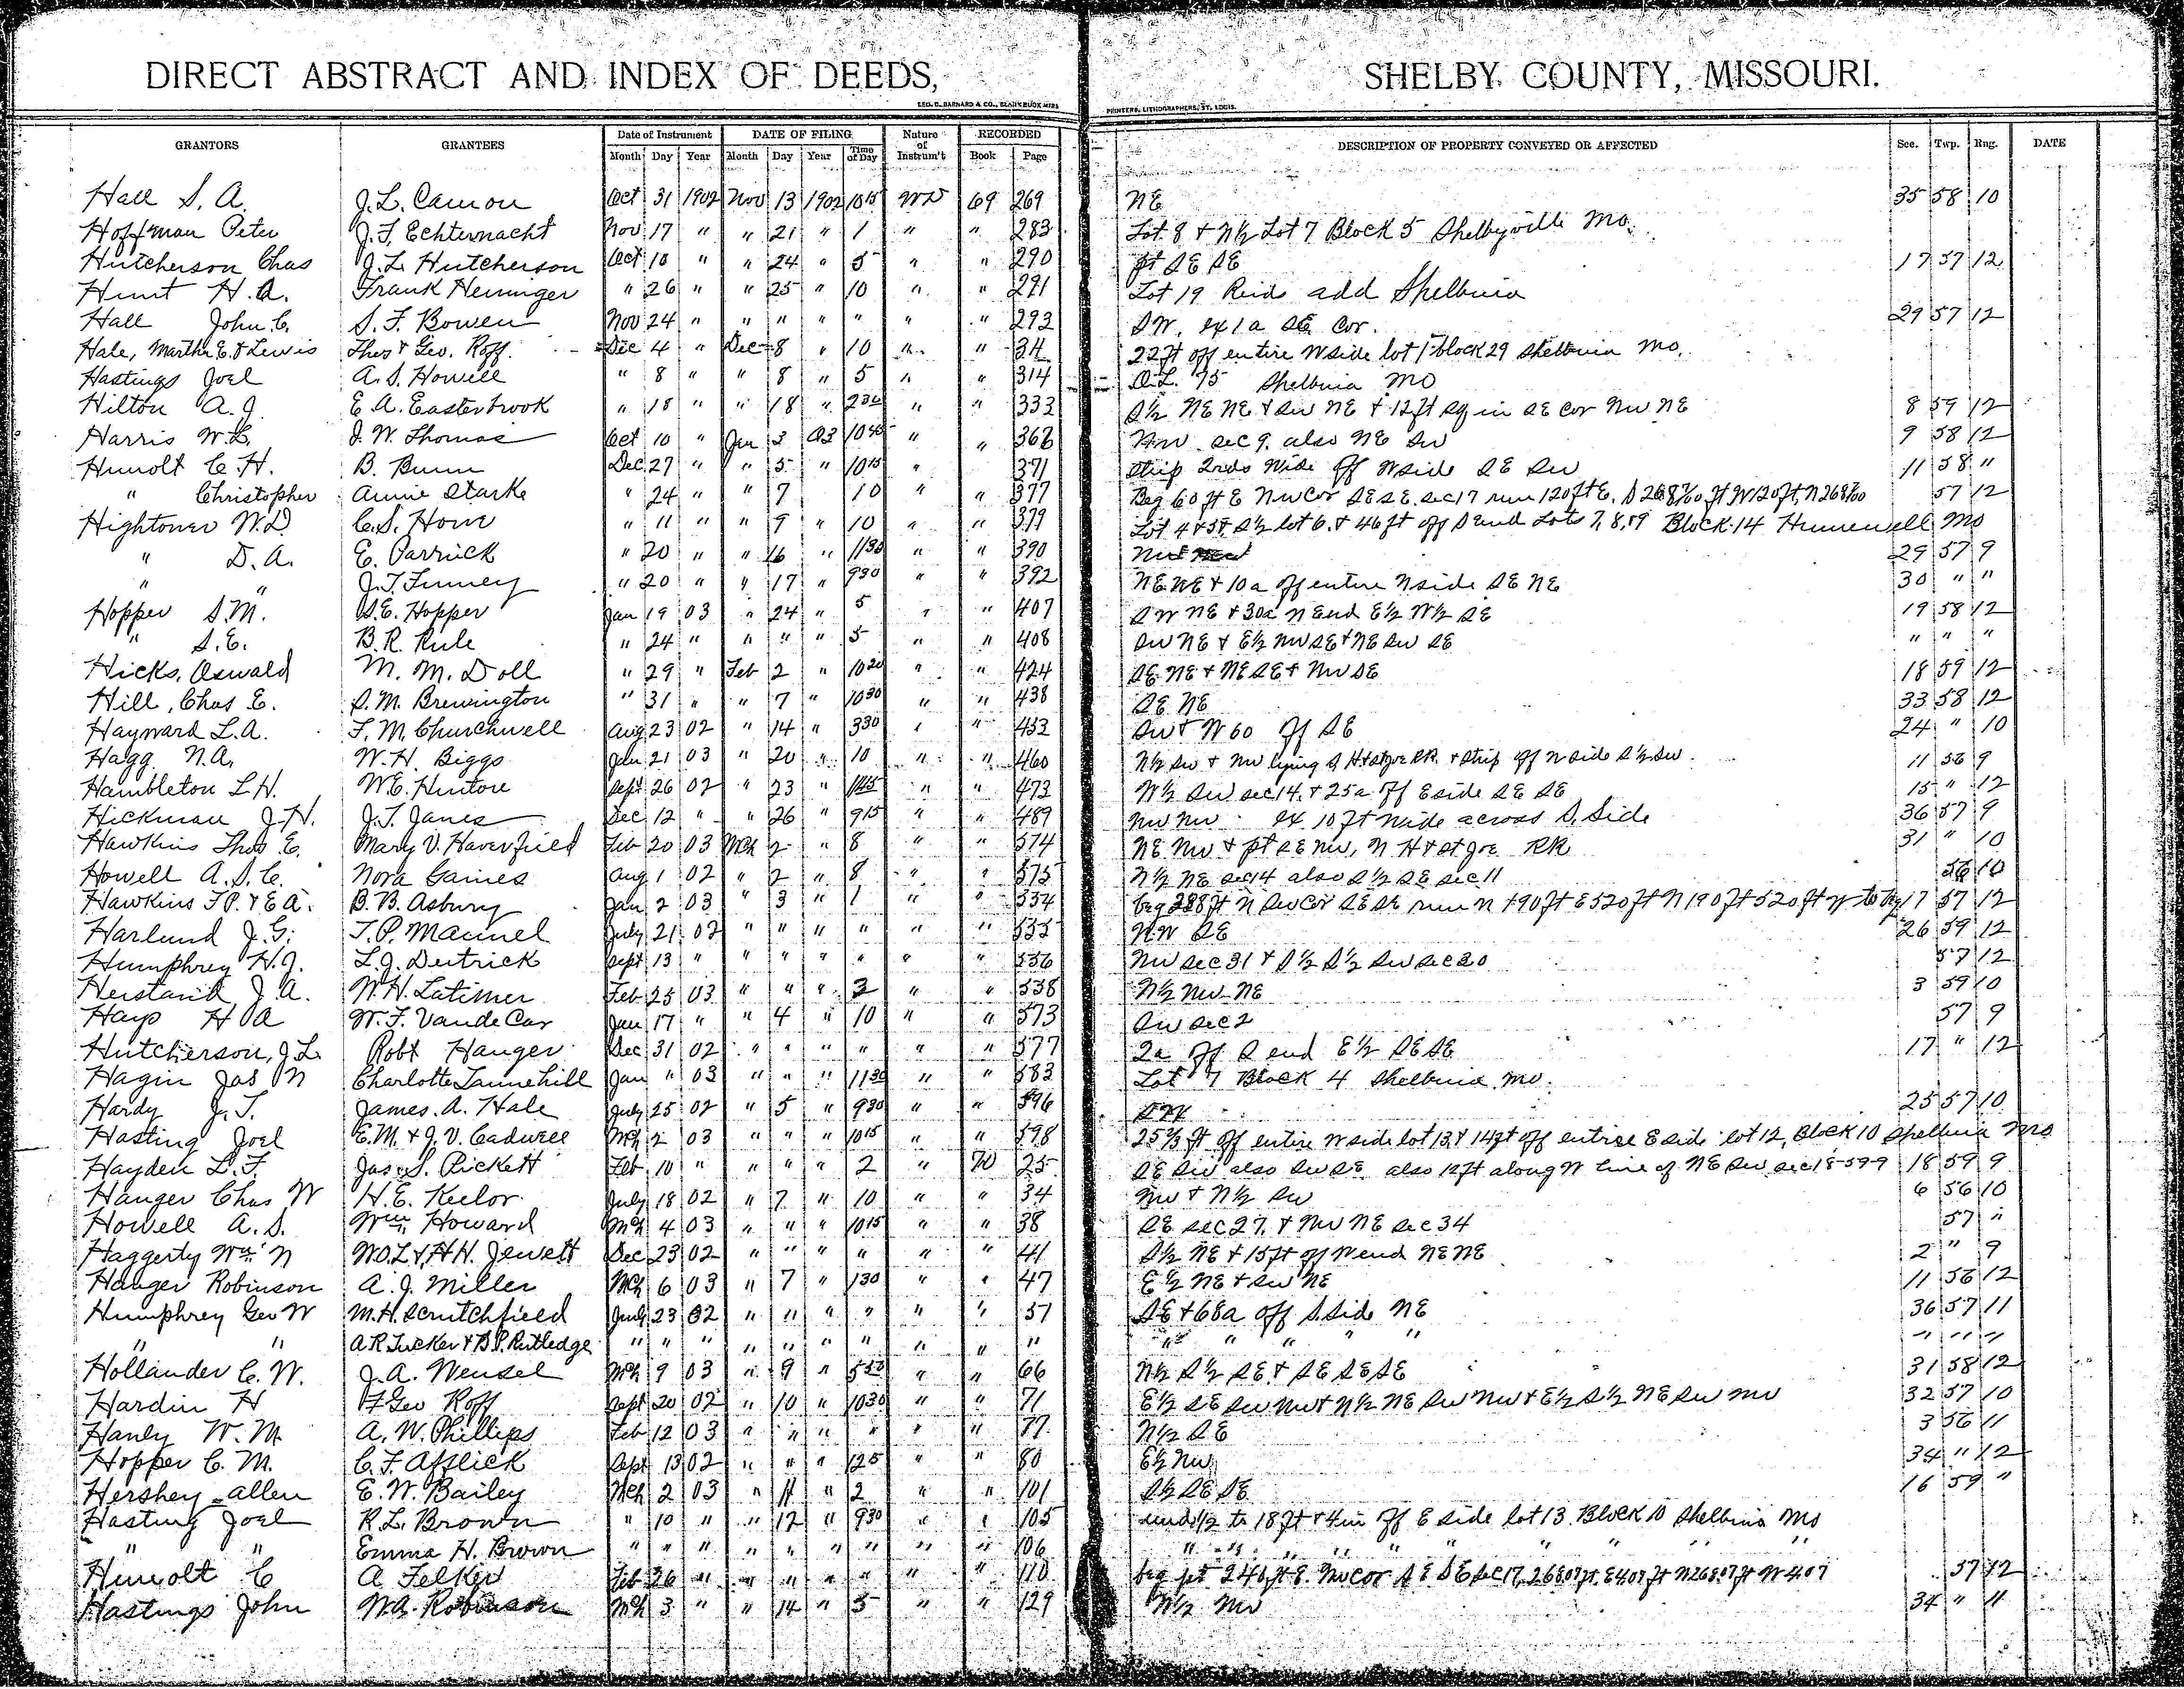 DIRECT ABSTRACT AND INDEX OF DEEDS, SHELBY COUNTY, MISSOURI.
GEO. D. BARNARD & CO., BLANK BOOK MFRS PRINTERS, LITHOGRAPHERS, ST. LOUIS.
GRANTORS GRANTEES Date of Instrument DATE OF FILING Nature of Instrum't RECORDED DESCRIPTION OF PROPERTY CONVEYED OR AFFECTED Sec. Twp. Rng. DATE
Month Day Year Month Day Year Time of Day Book Page
Hall S. A. J. L. Camon Oct 31 1902 Nov 13 1902 10 15 WD 69 269 NE 35 58 10
Hoffman Peter J. F. Echternacht Nov 17 " " 21 " 1 " " 283 Lot 8 & N½ Lot 7 Block 5 Shelbyville Mo.
Hutcherson Chas J. L. Hutcherson Oct 10 " " 24 " 5 " " 290 pt SE SE 17 57 12
Hunt H. A. Frank Heninger " 26 " " 25 " 10 " " 291 Lot 19 Reids add Shelbina
Hall John C. S. F. Bowen Nov 24 " " " " " " " 293 SW. ex 1a SE Cor. 29 57 12
Hale, Martha E. & Lewis Thos & Geo. Roff. Dec 4 " Dec 8 " 10 " " 22 ft off entire W side lot 1 block 29 Shelbina Mo.
Hastings Joel A. S. Howell " 8 " " 8 " 5 " " 314 O.L. 75 Shelbina Mo
Hilton A. J. E. A. Easterbrook " 18 " " 18 " 2 30 " " 333 S½ NE NE & SW NE & 12 ft sq in SE cor NW NE 8 59 12
Harris W. L. J. W. Thomas Oct 10 " Jan 3 03 10 40 " " 366 NW sec 9. also NE SW 9 58 12
Hunolt C. H. B. Bunn Dec 27 " " 5 " 10 15 " 371 Strip 2rds wide off W side SE SW 11 58 "
" Christopher Annie Starke " 24 " " 7 10 " " 377 Beg 60 ft E NW Cor SE SE. sec 17 run 120 ft E. S ft W 120 ft, N 57 12
Hightower W. D. C. S. Howe " 11 " " 9 " 10 " " 379 Lot 4 & 5 & S½ lot 6. & 46 ft off S end Lots 7, 8, & 9 Block 14 Hunnewell Mo
" D. A. E. Parrick " 20 " " 16 " 11 30 " " 390 NW 29 57 9
" " J. T. Finney " 20 " " 17 " 9 30 " " 392 NE NE & 10a off entire N side SE NE 30 " "
Hopper S. M. S. E. Hopper Jan 19 03 " 24 " 5 " " 407 SW NE & 30a N End E½ W½ SE 19 58 12
" S. E. B. R. Rule " 24 " " " " 5 " " 408 SW NE & E½ NW SE & NE SW SE " " "
Hicks, Oswald M. M. Doll " 29 " Feb 2 " 10 20 " " 424 SE NE & NE SE & NW SE 18 59 12
Hill, Chas E. S. M. Brewington " 31 " " 7 " 10 30 " " 438 SE NE 33 58 12
Hayward L. A. F. M. Churchwell Aug 23 02 " 14 " 3 30 " " 452 SW & W 60 off SE 24 " 10
Hagg N. A. W. H. Biggs Jan 21 03 " 20 " 10 " " 460 N½ SW & NW lying S H & St Joe RR. & strip off N side S½ SW. 11 56 9
Hambleton L. H. W. E. Hinton Sept 26 02 " 23 " 11 45 " " 473 W½ SW sec 14. & 25a off E side SE SE 15 " 12
Hickman J. H. J. T. Janes Dec 12 " " 26 " 9 15 " " 489 NW NW ex 10 ft wide across S. Side 36 57 9
Hawkins Thos E. Mary V. Haverfield Feb 20 03 Mch 2 " 8 " " 574 NE NW & pt SE NW, N H & St Joe RR 31 " 10
Howell A. S. C. Nora Gaines Aug 1 02 " 2 " 8 " " 575 N½ NE sec 14 also S½ SE sec 11 56 10
Hawkins T. P. & E. A. B. B. Asbury Jan 2 03 " 3 " 1 " " 534 beg 288 ft N SW Cor SE SE run N 190 ft E 520 ft 520 ft W to beg 17 57 12
Harlund J. G. T. P. Maunel July 21 02 " " " " " " 535 NW SE 26 59 12
Humphrey H. J. L. J. Deitrick Sept 13 " " " " " " " 536 NW sec 31 & S½ S½ SW sec 30 57 12
Herstand J. A. W. H. Latimer Feb 25 03 " " " 3 " " 538 N½ NW NE 3 59 10
Hays H A W. F. VandeCar Jan 17 " " 4 " 10 " " 573 SW sec 2 57 9
Hutcherson, J. L. Robt Hanger Dec 31 02 " " " " " " 577 2a off S end E½ SE SE 17 " 12
Hagin Jas N Charlotte Tannehill Jan " 03 " " " 11 30 " " 583 Lot 7 Block 4 Shelbina Mo.
Hardy J. T. James. A. Hale July 25 02 " 5 " 9 30 " " 596 SW 25 57 10
Hasting Joel E. M. & J. V. Cadwell Mch 2 03 " " " 10 15 " " 598 25⅔ ft off entire W side lot 13, & 14 ft off entire E side lot 12, Block 10 Shelbina Mo
Hayden L. F. Jas. S. Rickett Feb 10 " " " " 2 " 70 25 SE SW also SW SE also 12 ft along W line of NE SW sec 18-59-9 18 59 9
Hanger Chas W H. E. Keelor July 18 02 " 7 " 10 " " 34 NW & N½ SW 6 56 10
Howell A. S. Wm Howard Mch 4 03 " " " 10 15 " " 38 SE sec 27, & NW NE sec 34 57 "
Haggerty Wm N W. O. L. & H. H. Jewett Dec 23 02 " " " " " " 41 S½ NE & 15 ft off W end NE NE 2 " 9
Hanger Robinson A. J. Miller Mch 6 03 " 7 " 1 30 " " 47 E½ NE & SW NE 11 56 12
Humphrey Geo W M. H. Scrutchfield July 23 02 " " " " " " 57 SE & 68a off S. Side NE 36 57 11
" " A R Tucker & B. P. Rutledge " " " " " " " " " " " " " " " " "
Hollander C. W. J. A. Wensel Mch 9 03 " 9 " " " 66 N½ S½ SE & SE SE SE 31 58 12
Hardin H F Geo Roff Sept 20 02 " 10 " 10 30 " " 71 E½ SE SW NW & N½ NE SW NW & E½ S½ NE SW NW 32 57 10
Hanly W. M. A. W. Phillips Feb 12 03 " " " " " " 77 N½ SE 3 56 11
Hopper C. M. C. F. Afflick Sept 13 02 " " " 1 25 " " 80 E½ NW 34 " 12
Hershey allen E. W. Bailey Mch 2 03 " 11 " 2 " " 101 S½ SE SE 16 59 "
Hasting Joel R. L. Brown " 10 " " 12 " 9 30 " " 105 und ½ to 18 ft & 4 in off E side lot 13 Block 10 Shelbina Mo
" " Emma H. Brown " " " " " " " " " 106 " " " " " " " "
Hunolt C A Felker Feb 26 " " " " " " " 110 beg pt 240 ft E. NW cor SE SE sec 17, 57 12
Hastings John W. A. Robinson Mch 3 " " 14 " 5 " " 129 N½ NW 34 " 11